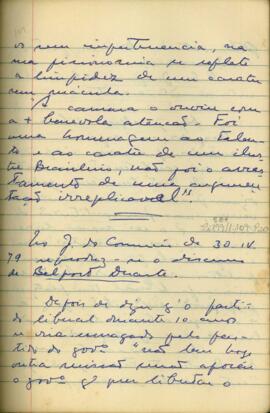 os sem impertinencia, na
sua pisionomia se reflete
a limpidez de um caracter
sem macula.
A camara o ouviu com
a + benevola atenção. Foi
uma homenagem ao talen
to e ao caracter de um ilus
tre Brasileiro, não foi o arras
tamento de uma argumen
tação irreplicavel"
No J. do Comercio de 30 IV
79 reproduz-se o discurso
de Belfort Duarte.
Depois de dizer q' o parti-
do liberal durante 10 anos
e vira esmagado pelo par-
tido do govº não tem hoje
outra missão senão apoiar
o govº q' quer libertar o